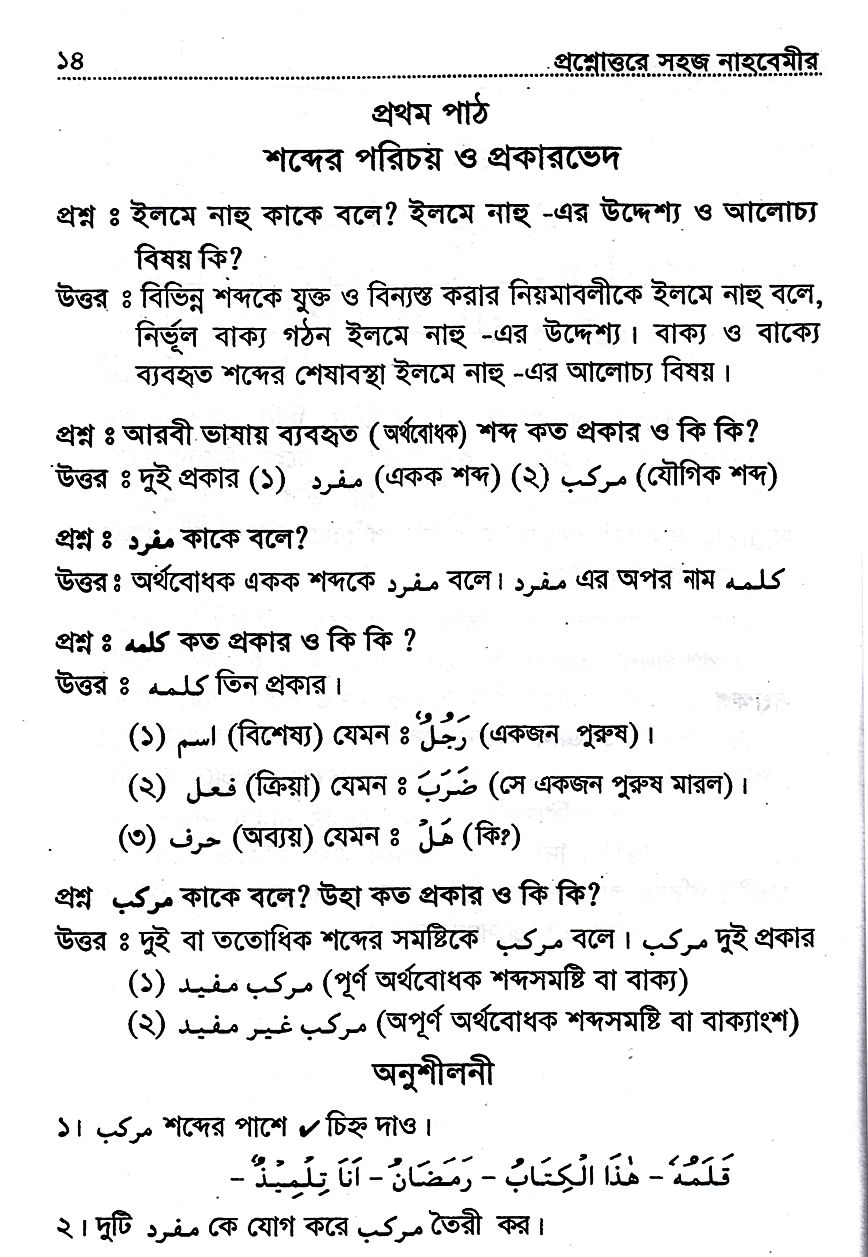 ১৪ প্রশ্নোত্তরে সহজ নাহবেমীর
প্রথম পাঠ
শব্দের পরিচয় ও প্রকারভেদ
প্রশ্ন ঃ ইলমে নাহু কাকে বলে? ইলমে নাহু -এর উদ্দেশ্য ও আলোচ্য
বিষয় কি?
উত্তর ঃ বিভিন্ন শব্দকে যুক্ত ও বিন্যস্ত করার নিয়মাবলীকে ইলমে নাহু বলে,
নির্ভূল বাক্য গঠন ইলমে নাহু -এর উদ্দেশ্য। বাক্য ও বাক্যে
ব্যবহৃত শব্দের শেষাবস্থা ইলমে নাহু -এর আলোচ্য বিষয়।
প্রশ্ন ঃ আরবী ভাষায় ব্যবহৃত (অর্থবোধক) শব্দ কত প্রকার ও কি কি?
উত্তর ঃ দুই প্রকার (১) مفرد (একক শব্দ) (২) مركب (যৌগিক শব্দ)
প্রশ্ন ঃ مفرد কাকে বলে?
উত্তর ঃ অর্থবোধক একক শব্দকে مفرد বলে। مفرد এর অপর নাম كلمه
প্রশ্ন ঃ كلمه কত প্রকার ও কি কি ?
উত্তর ঃ كلمه তিন প্রকার।
(১) اسم (বিশেষ্য) যেমন ঃ رَجُلٌ (একজন পুরুষ)।
(২) فعل (ক্রিয়া) যেমন ঃ ضَرَبَ (সে একজন পুরুষ মারল)।
(৩) حرف (অব্যয়) যেমন ঃ هَلْ (কি?)
প্রশ্ন مركب কাকে বলে? উহা কত প্রকার ও কি কি?
উত্তর ঃ দুই বা ততোধিক শব্দের সমষ্টিকে مركب বলে। مركب দুই প্রকার
(১) مركب مفيد (পূর্ণ অর্থবোধক শব্দসমষ্টি বা বাক্য)
(২) مركب غير مفيد (অপূর্ণ অর্থবোধক শব্দসমষ্টি বা বাক্যাংশ)
অনুশীলনী
১। مركب শব্দের পাশে ✓ চিহ্ন দাও।
قَلَمُهٗ – هٰذَا الْكِتَابُ – رَمَضَانُ – اَنَا تِلْمِيْذٌ –
২। দুটি مفرد কে যোগ করে مركب তৈরী কর।